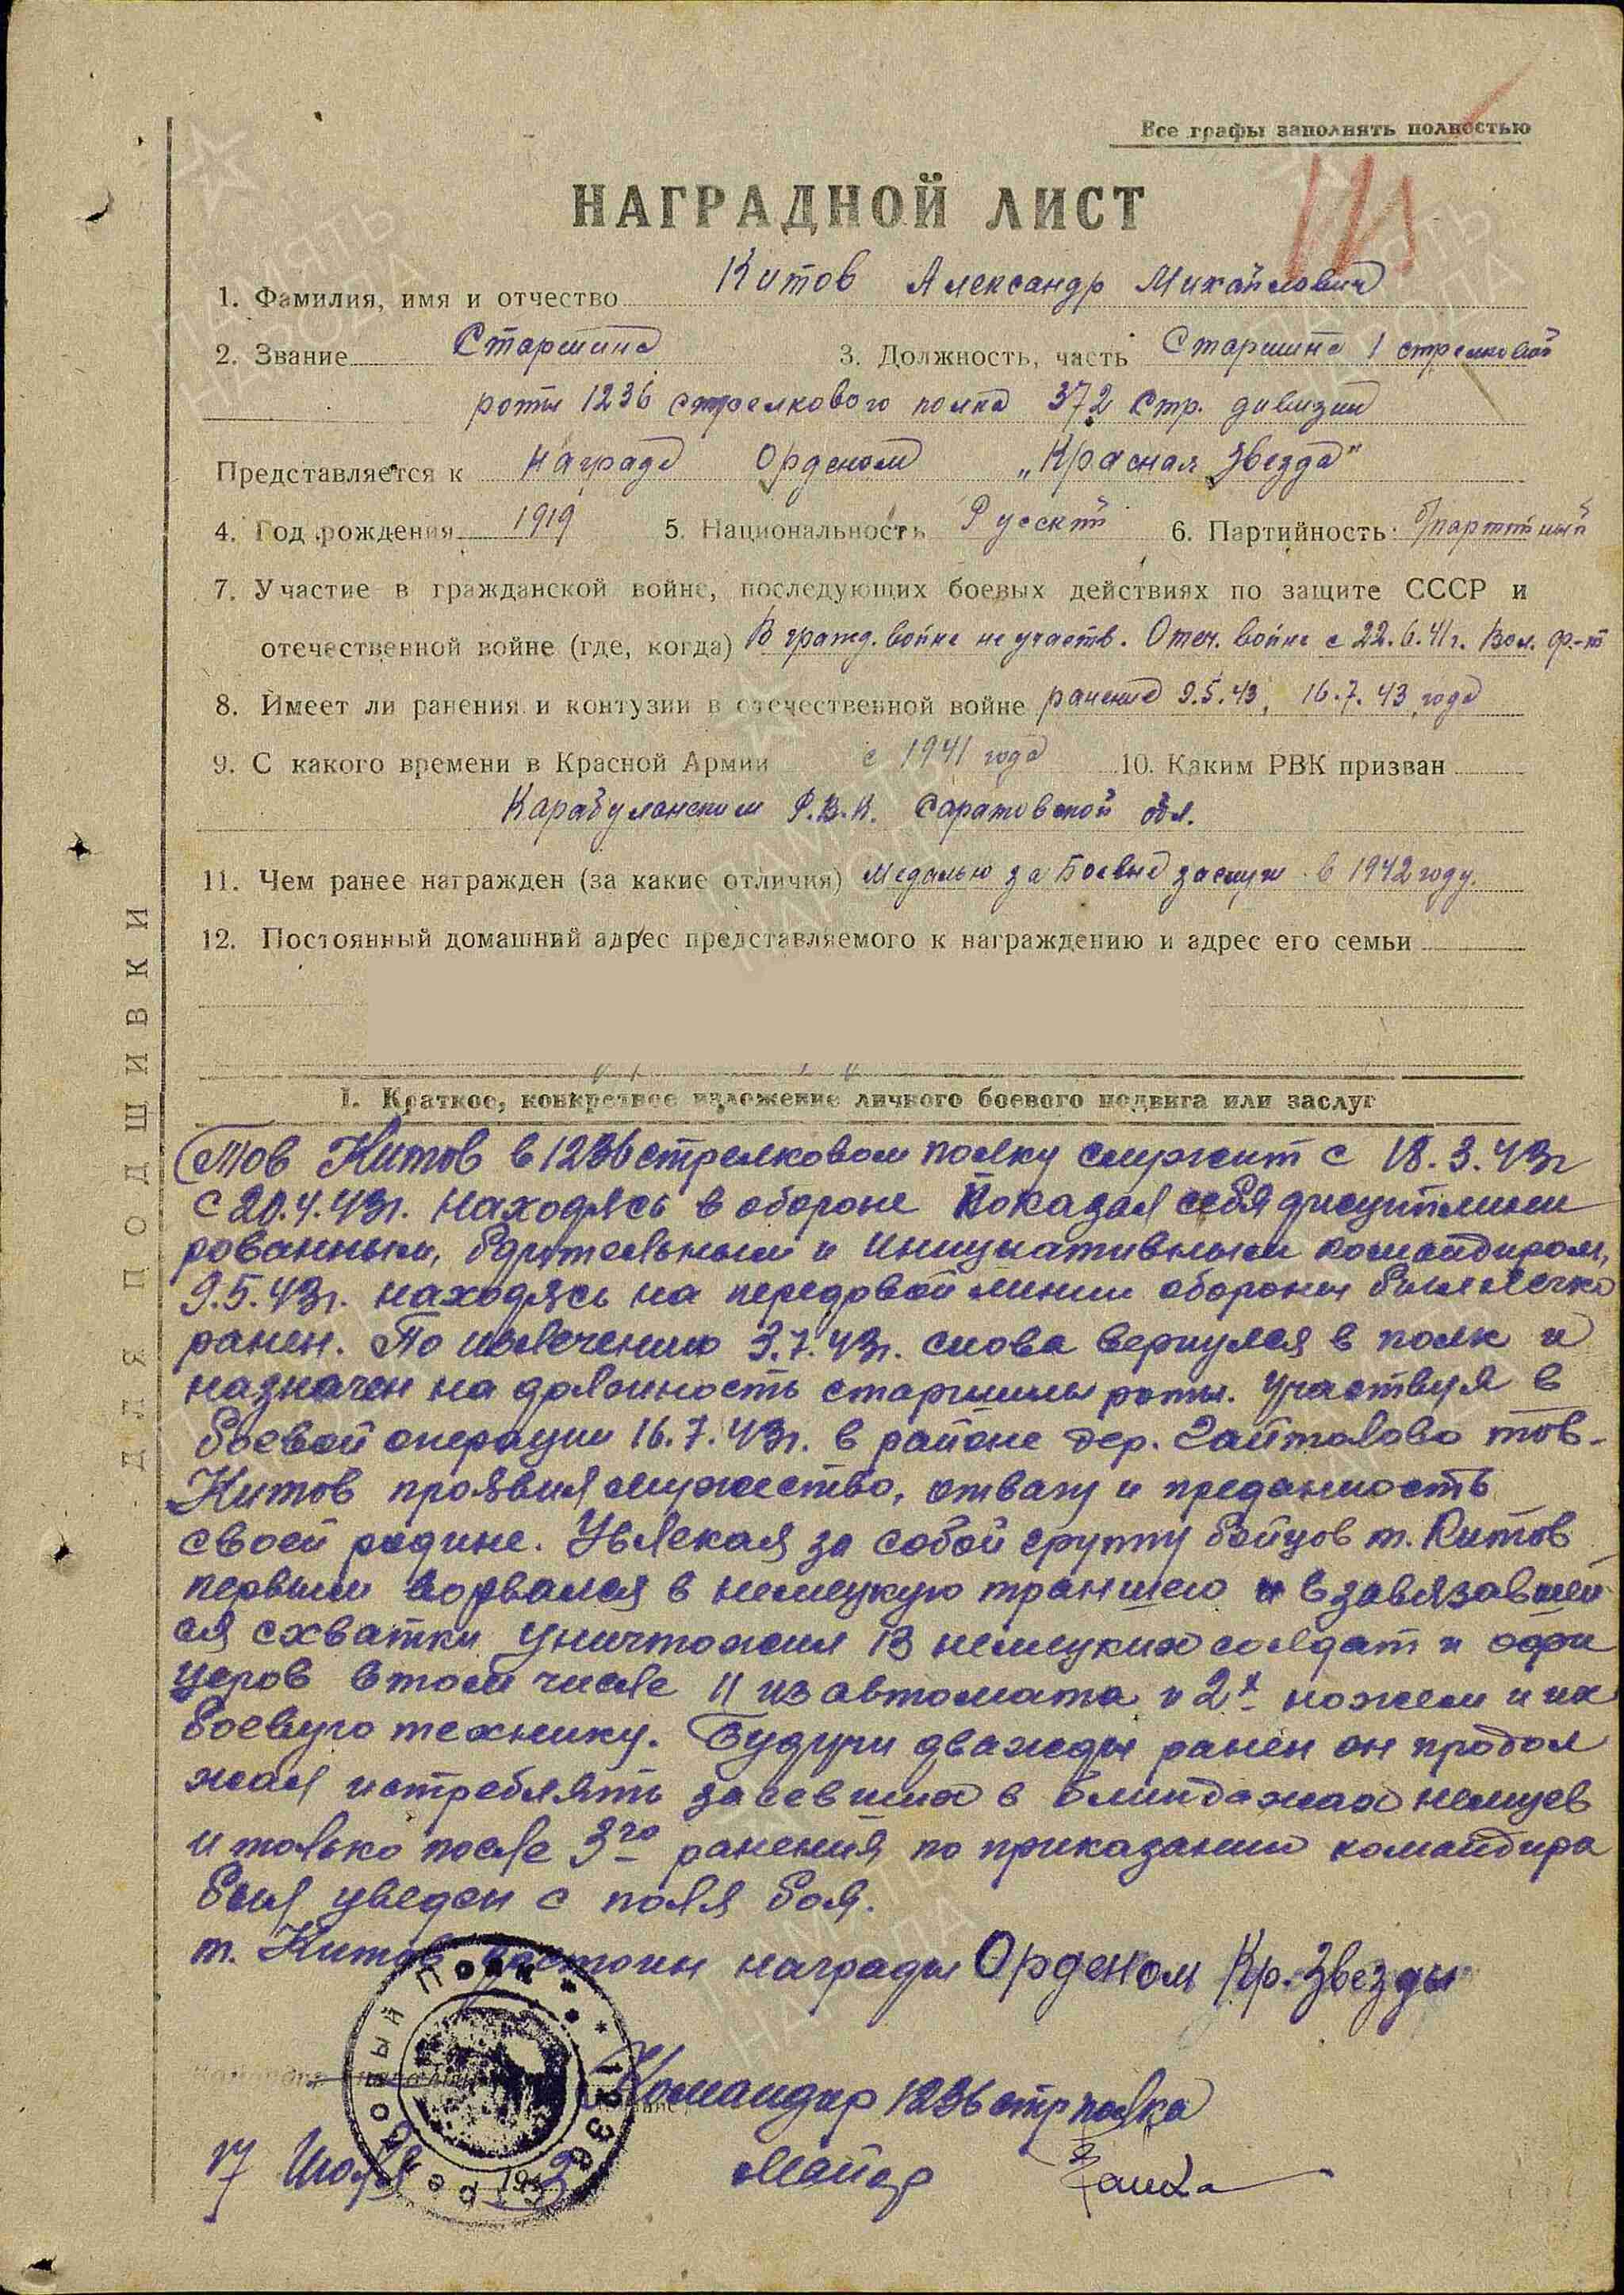 Все графы заполнять полностью
НАГРАДНОЙ ЛИСТ
1. Фамилия, имя и отчество Китов Александр Михайлович
2. Звание Старшина 3. Должность, часть Старшина 1 стрелковой
роты 1236 стрелкового полка 372 стр. дивизии
Представляется к награде Орденом „Красная Звезда"
4. Год рождения 1919 5. Национальность Русский 6. Партийность: б/партийный
7. Участие в гражданской войне, последующих боевых действиях по защите СССР и
отечественной войне (где, когда) В гражд. войне не участв. Отеч. войне с 22.6.41г. Вол. ф-т
8. Имеет ли ранения и контузии в отечественной войне ранение 9.5.43, 16.7.43 года
9. С какого времени в Красной Армии с 1941 года 10. Каким РВК призван
Р.В.К. Саратовской обл.
11. Чем ранее награжден (за какие отличия) Медалью за Боевые заслуги в 1942 году.
12. Постоянный домашний адрес представляемого к награждению и адрес его семьи
I. Краткое, конкретное изложение личного боевого подвига или заслуг
Тов Китов в 1236 стрелковом полку служит с 18.3.43г
с 20.4.43г. находясь в обороне показал себя дисциплини
рованным, бдительным и инициативным командиром,
9.5.43г. находясь на передовой линии обороны был легко
ранен. По излечению 3.7.43г. снова вернулся в полк и
назначен на должность старшины роты. Участвуя в
боевой операции 16.7.43г. в районе дер. Гайтолово тов.
Китов проявил мужество, отвагу и преданность
своей родине. Увлекая за собой группу бойцов т. Китов
первым ворвался в немецкую траншею и в завязавшей
ся схватки уничтожил 13 немецких солдат и офи
церов в том числе 11 из автомата и 2х ножем и их
боевую технику. Будучи дважды ранен он продол
жал истреблять засевших в блиндажах немцев
и только после 3го ранения по приказанию командира
был уведен с поля боя.
т. Китов достоин награды Орденом Кр. Звезды
Командир 1236 стр полка
17 Июля 1943 Майор
ДЛЯ ПОДШИВКИ
ПАМЯТЬ НАРОДА